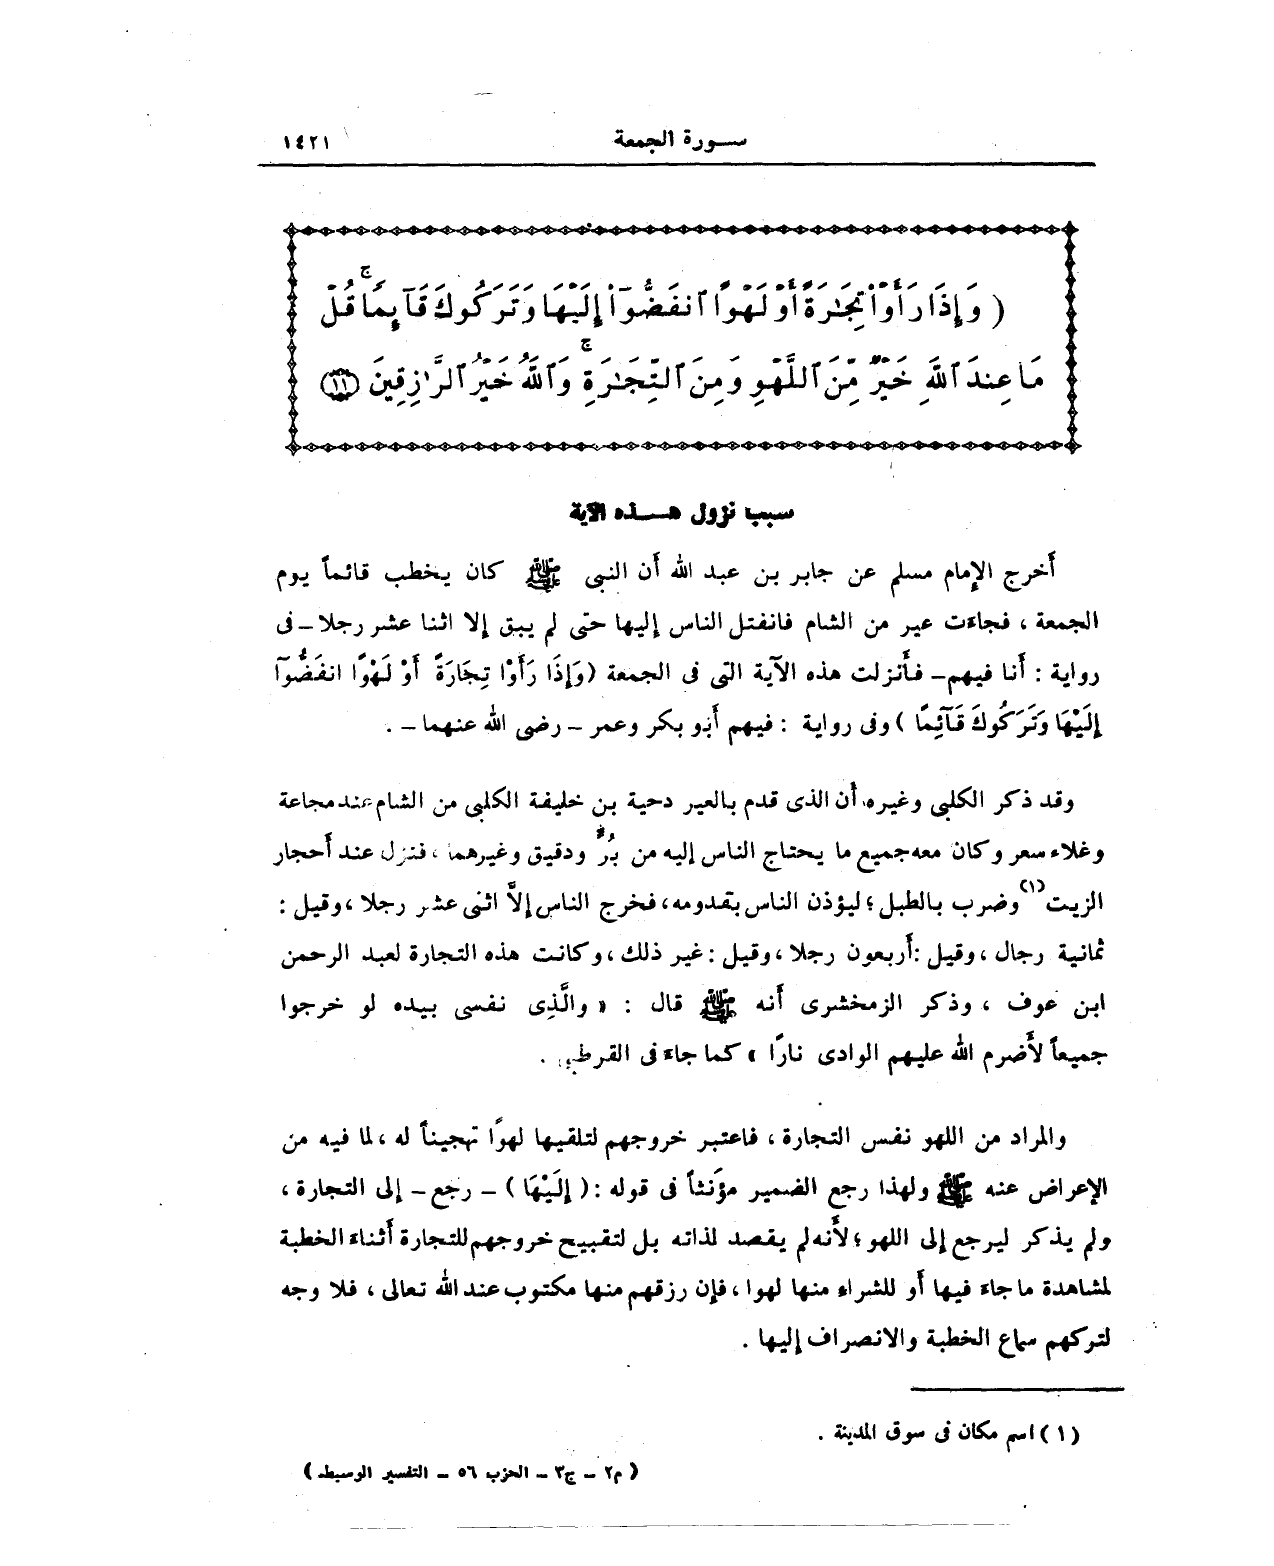 سورة الجمعة ١٤٢١
( وَإِذَا رَأَوْا۟ تِجَـٰرَةً أَوْ لَهْوًا ٱنفَضُّوٓا۟ إِلَيْهَا وَتَرَكُوكَ قَآئِمًا ۚ قُلْ
مَا عِندَ ٱللَّهِ خَيْرٌ مِّنَ ٱللَّهْوِ وَمِنَ ٱلتِّجَـٰرَةِ ۚ وَٱللَّهُ خَيْرُ ٱلرَّٰزِقِينَ ﴿١١﴾
سبب نزول هـــذه الآية
أخرج الإمام مسلم عن جابر بن عبد الله أن النبى ﷺ كان يخطب قائماً يوم
الجمعة ، فجاءت عير من الشام فانفتل الناس إليها حتى لم يبق إلا اثنا عشر رجلا – فى
رواية : أنا فيهم – فأُنزلت هذه الآية التى فى الجمعة (وَإِذَا رَأَوْا تِجَارَةً أَوْ لَهْوًا انفَضُّوآ
إِلَيْهَا وَتَرَكُوكَ قَآئِمًا ) وفى رواية : فيهم أبو بكر وعمر – رضى الله عنهما – .
وقد ذكر الكلبى وغيره أن الذى قدم بالعير دحية بن خليفة الكلبى من الشام عند مجاعة
وغلاء سعر وكان معه جميع ما يحتاج الناس إليه من بُرٍّ ودقيق وغيرهما ، فنزل عند أحجار
الزيت (١) وضرب بالطبل ؛ ليؤذن الناس بقدومه ، فخرج الناس إلاَّ اثنى عشر رجلا ، وقيل :
ثمانية رجال ، وقيل : أربعون رجلا ، وقيل : غير ذلك ، وكانت هذه التجارة لعبد الرحمن
ابن عوف ، وذكر الزمخشرى أنه ﷺ قال : « والَّذِى نفسى بيده لو خرجوا
جميعاً لأضرم الله عليهم الوادى نارًا » كما جاء فى القرطبى .
والمراد من اللهو نفس التجارة ، فاعتبر خروجهم لتلقيها لهوًا تهجيناً له ، لما فيه من
الإعراض عنه ﷺ ولهذا رجع الضمير مؤنثاً فى قوله : ( إِلَيْهَا ) – رجع – إلى التجارة ،
ولم يذكر ليرجع إلى اللهو ؛ لأنه لم يقصد لذاته بل لتقبيح خروجهم للتجارة أثناء الخطبة
لمشاهدة ما جاء فيها أو للشراء منها لهوا ، فإن رزقهم منها مكتوب عند الله تعالى ، فلا وجه
لتركهم سماع الخطبة والانصراف إليها .
(١) اسم مكان فى سوق المدينة .
( م٢ – ج٣ – الحزب ٥٦ – التفسير الوسيط )